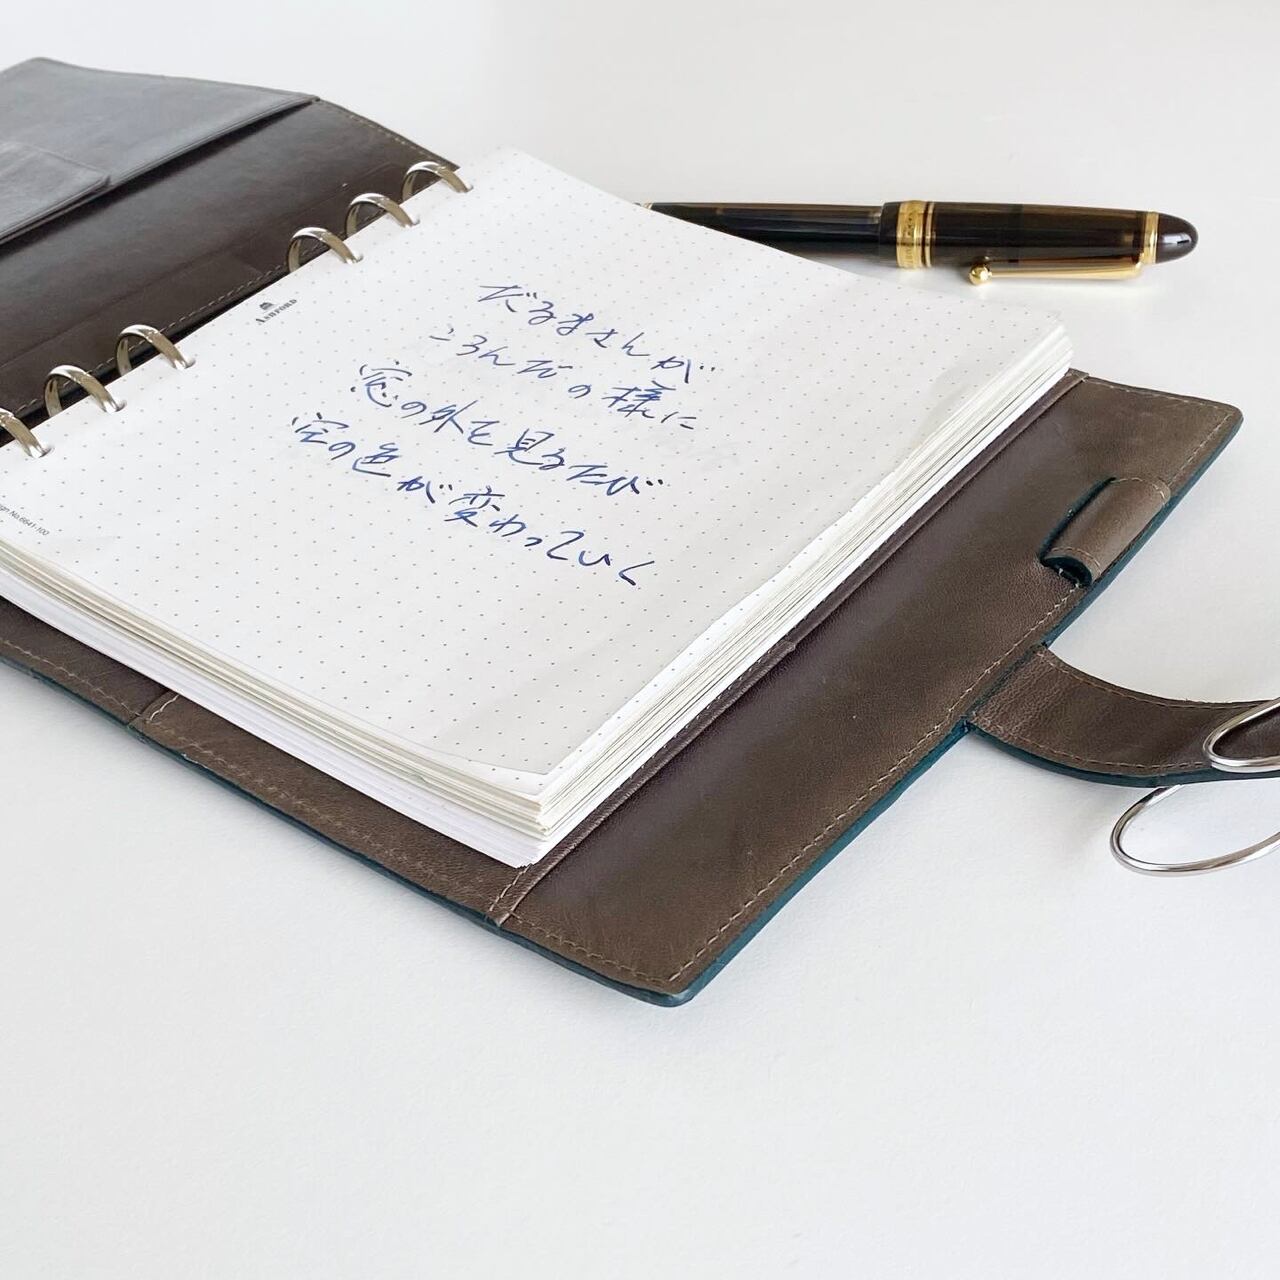 ASHFORD
だるまさんが
ころんだの様に
窓の外を見るたび
空の色が変わっていく
ign No.6641-100